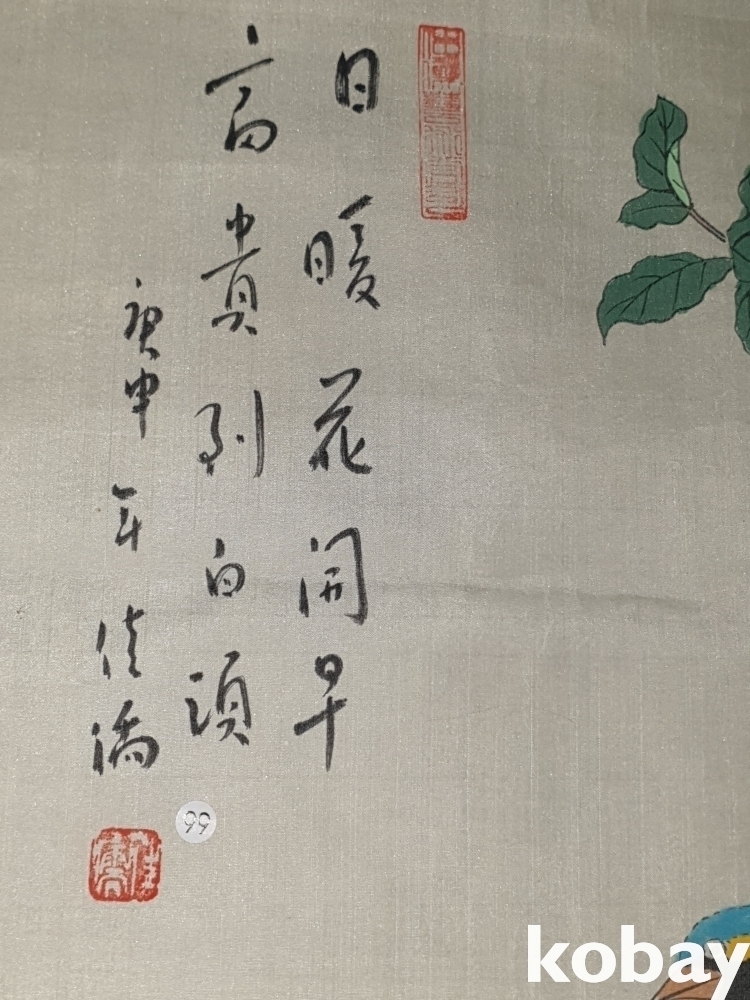 日暖花開早
富貴到白頭
庚申年佳僑
99
kobay